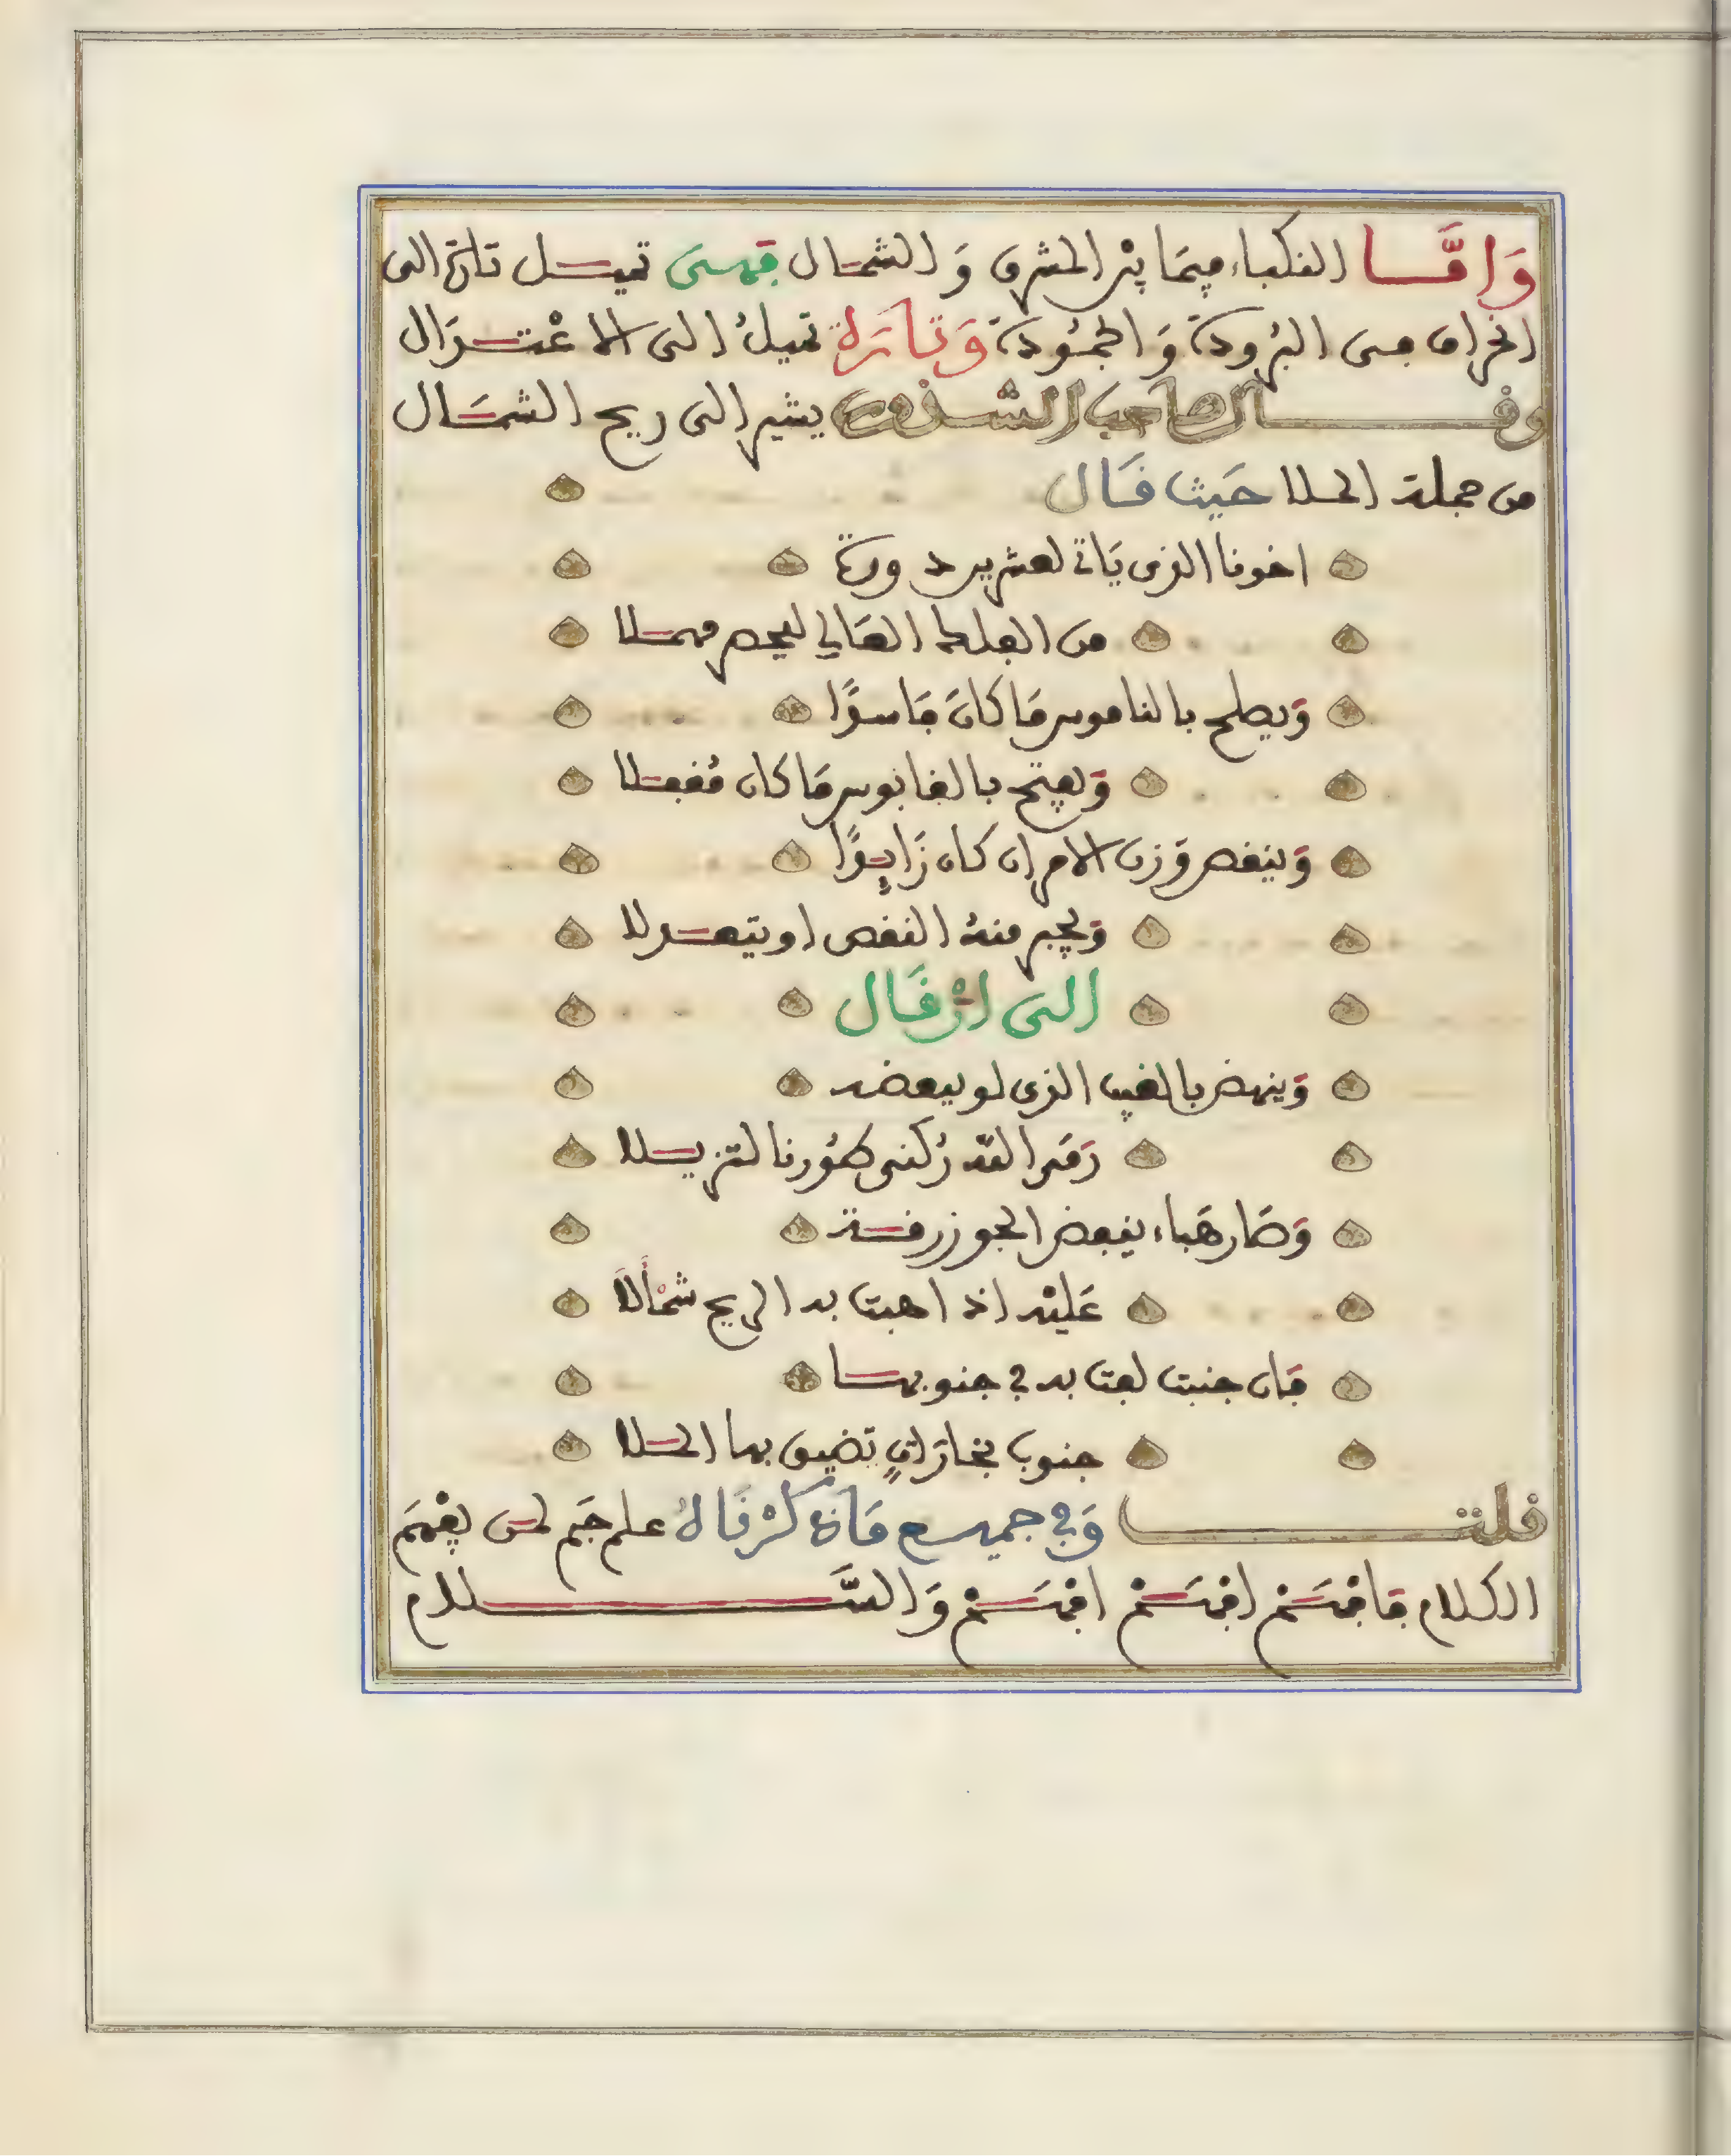 وَامَّا النكباء فيمَا بيْن المشرق وَالشمال فهى تميل تارة الى
انحراف فى البرُودة وَالجمُودة وَتارَة تميلُ الى الاعْتدَال
وقال صاحب الشذور يشير الى ريح الشمَال
من جملة الحلا حَيث قَال
اخونا الذى يَاتى لعشرين دورة
من الفلك العَالى ليحصر مهملا
وَيصلح بالناموس مَا كانَ فَاسدًا
وَيفتح بالقابوس مَا كان مُقفلا
وَينقص وَزن الامر ان كان زَايدًا
وَيجبر منهُ النقص او يتعدلا
الى انْ قَال
وَينهض بالغيب الذى لو يبعضه
رَمَى اللّه رُكنى طُورنا لتزيلا
وَصَار هَباء يقبض الجو زرقة
عَليْه اذا هبت به الريح شمْأَلاَ
فَان جنبت لعبت به فى جنوبها
جنوب بخارَاتٍ تضيق بها الحلا
قلت وَفى جميع مَا ذكرْ قَالهُ علم جَم لمن يفْهَم
الكلام فافهَمْ افهَمْ افهَمْ وَالسَّلام